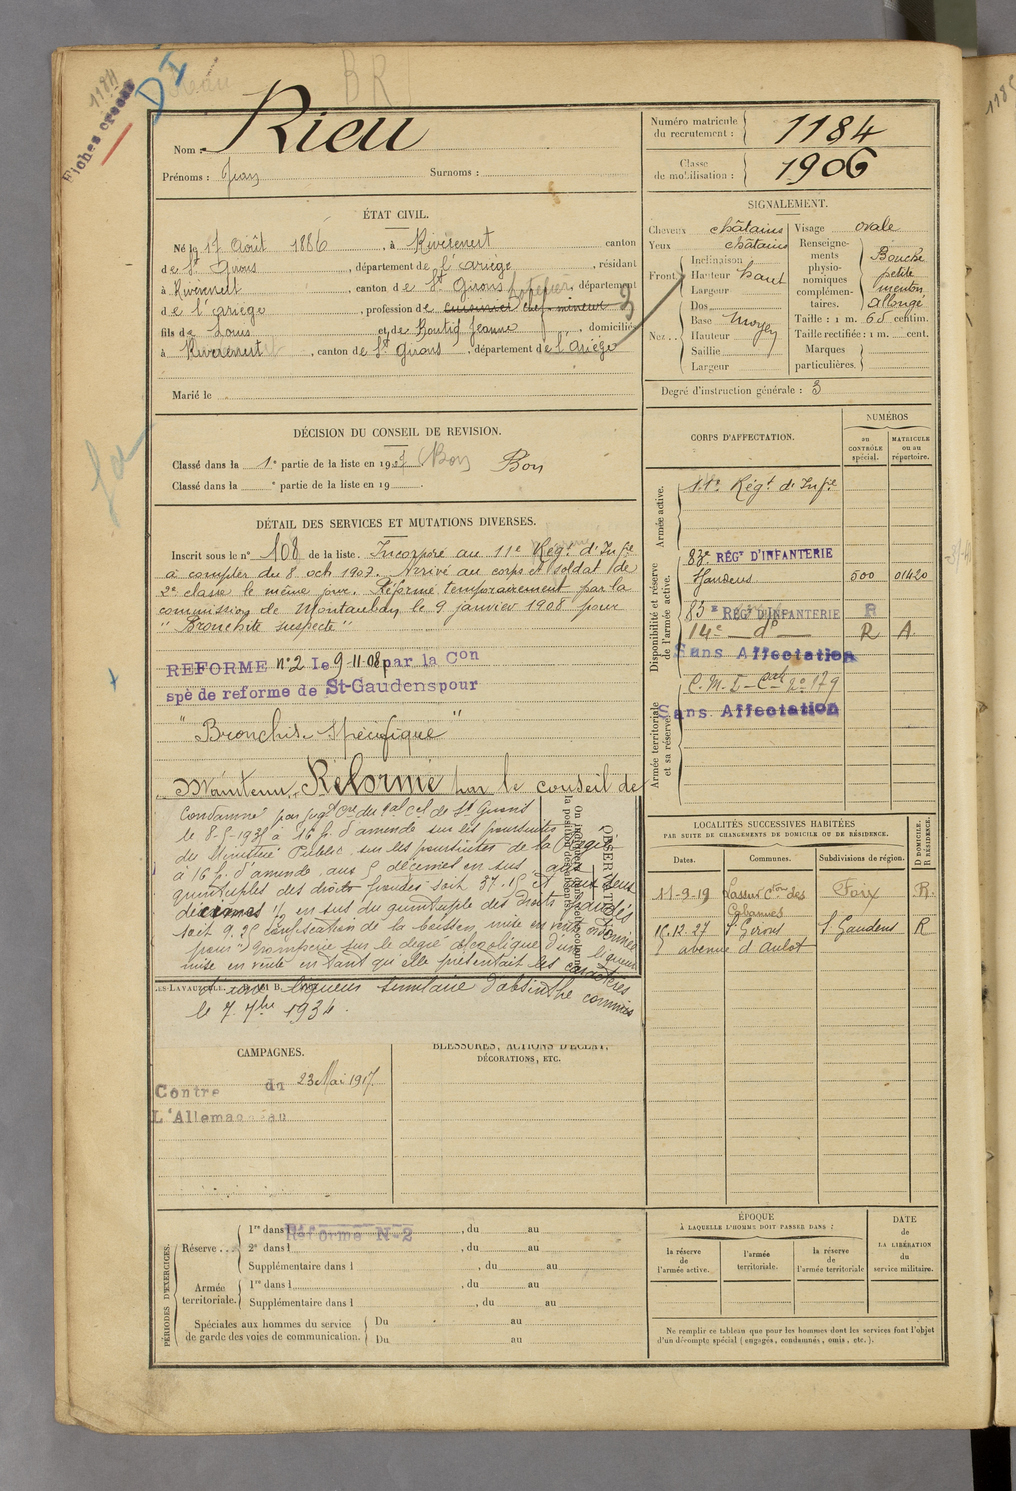 1184
Fiches croces
D I
BR
Nom : Rieu
Prénoms : Jean Surnoms :
Numéro matricule du recrutement : 1184
Classe de mobilisation : 1906
ÉTAT CIVIL.
Né le 17 Août 1886, à Rivèrenert canton
de St Girons, département de l'Ariège, résidant
à Rivèrenert, canton de St Girons, département
de l'Ariège, profession de cuisinier chef mineur
fils de Louis et de Boutié Jeanne, domicilié
à Rivèrenert, canton de St Girons, département de l'Ariège
3
Marié le
SIGNALEMENT.
Cheveux châtains
Yeux châtains
Front. Inclinaison
Hauteur haut
Largeur
Nez.. Dos
Base moyen
Hauteur
Saillie
Largeur
Visage ovale
Renseignements physionomiques complémentaires. Bouche petite menton allongé
Taille : 1 m. 65 centim.
Taille rectifiée : 1 m. cent.
Marques particulières.
Degré d'instruction générale : 3
DÉCISION DU CONSEIL DE REVISION.
Classé dans la 1e partie de la liste en 1907 (Bon) Bon
Classé dans la e partie de la liste en 19 .
DÉTAIL DES SERVICES ET MUTATIONS DIVERSES.
Inscrit sous le n° 108 de la liste. Incorporé au 11e Régt d'Infie
à compter du 8 octb 1907. Arrivé au corps et soldat de
2e classe le même jour. Réformé temporairement par la
commission de Montauban le 9 janvier 1908 pour
" Bronchite suspecte "
REFORME n°2 le 9-11-08 par la Con
spé de reforme de St-Gaudens pour
" Bronchite Spécifique "
Maintenu Réformé par le conseil de
Condamné par jugt Cre du tal Cel de St Girons
le 8-5-1935 à 16 f. d'amende sur les poursuites
du Ministère Public, sur les poursuites de la Régie
à 16 f. d'amende, aux 5 décimes en sus, au
quintuples des droits fraudés soit 37.15 et aux deux
décimes 1/2 en sus du quintuple des droits fraudés
soit 9.25 confiscation de la boisson, mise en vente ordonnée
pour tromperie sur le degré alcoolique d'une liqueur
mise en vente en tant qu'elle présentait les caractères
d'une liqueur similaire d'absinthe commis
le 7. 7bre 1934.
OBSERVATIONS
CORPS D'AFFECTATION.
NUMÉROS
au CONTRÔLE spécial.
MATRICULE ou au répertoire.
Armée active.
11e Régt d'Infie
Disponibilité et réserve de l'armée active.
83e RÉGt D'INFANTERIE
500 01420
83e RÉGt D'INFANTERIE R
14e — do — R A
Sans Affectation
Armée territoriale et sa réserve.
Sans Affectation
LOCALITÉS SUCCESSIVES HABITÉES
PAR SUITE DE CHANGEMENTS DE DOMICILE OU DE RÉSIDENCE.
Dates. Communes. Subdivisions de région. D DOMICILE. R RÉSIDENCE.
11-9-19 Lassur Cton des Cabannes Foix R.
15.12.27 St Girons avenue d'Aulot St Gaudens R
CAMPAGNES.
Contre L'Allemagne du 23 Mai 1917 au
BLESSURES, ACTIONS D'ÉCLAT, DÉCORATIONS, ETC.
PÉRIODES D'EXERCICES.
Réserve...
1re dans l , du au
2e dans l , du au
Réforme N-2
Supplémentaire dans l , du au
Armée territoriale.
1re dans l , du au
Supplémentaire dans l , du au
Spéciales aux hommes du service de garde des voies de communication.
Du au
Du au
ÉPOQUE
À LAQUELLE L'HOMME DOIT PASSER DANS :
la réserve de l'armée active.
l'armée territoriale.
la réserve de l'armée territoriale
DATE de LA LIBÉRATION du service militaire.
Ne remplir ce tableau que pour les hommes dont les services font l'objet
d'un décompte spécial (engagés, condamnés, omis, etc.).